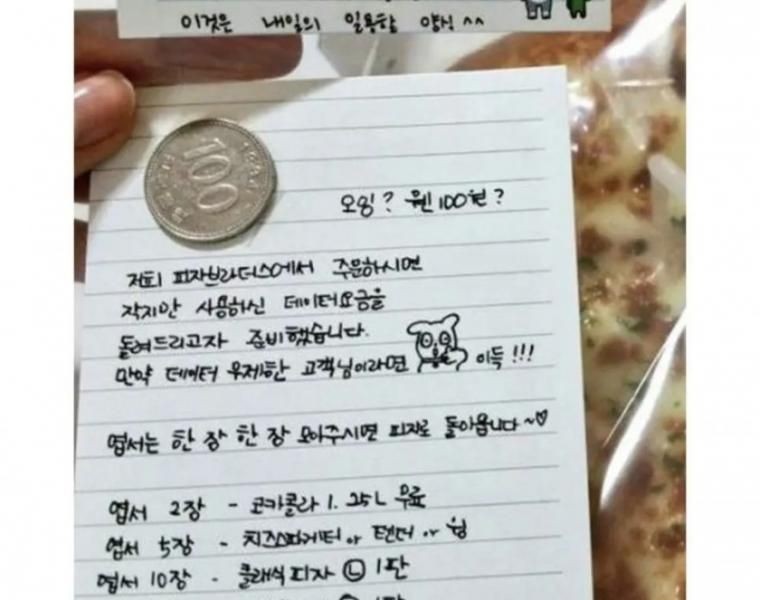 이것은 내일의 일용할 양식 ^^
100
오잉? 웬 100원?
저희 피자브라더스에서 주문하시면
작지만 사용하신 데이터요금을
돌려드리고자 준비했습니다.
만약 데이터 무제한 고객님이라면 이득!!!
엽서는 한 장 한 장 모아주시면 피자로 돌아옵니다~♡
엽서 2장 - 코카콜라 1.25L 무료
엽서 5장 - 치즈스파게티 or 텐더 or 윙
엽서 10장 - 클래식 피자 Ⓛ 1판